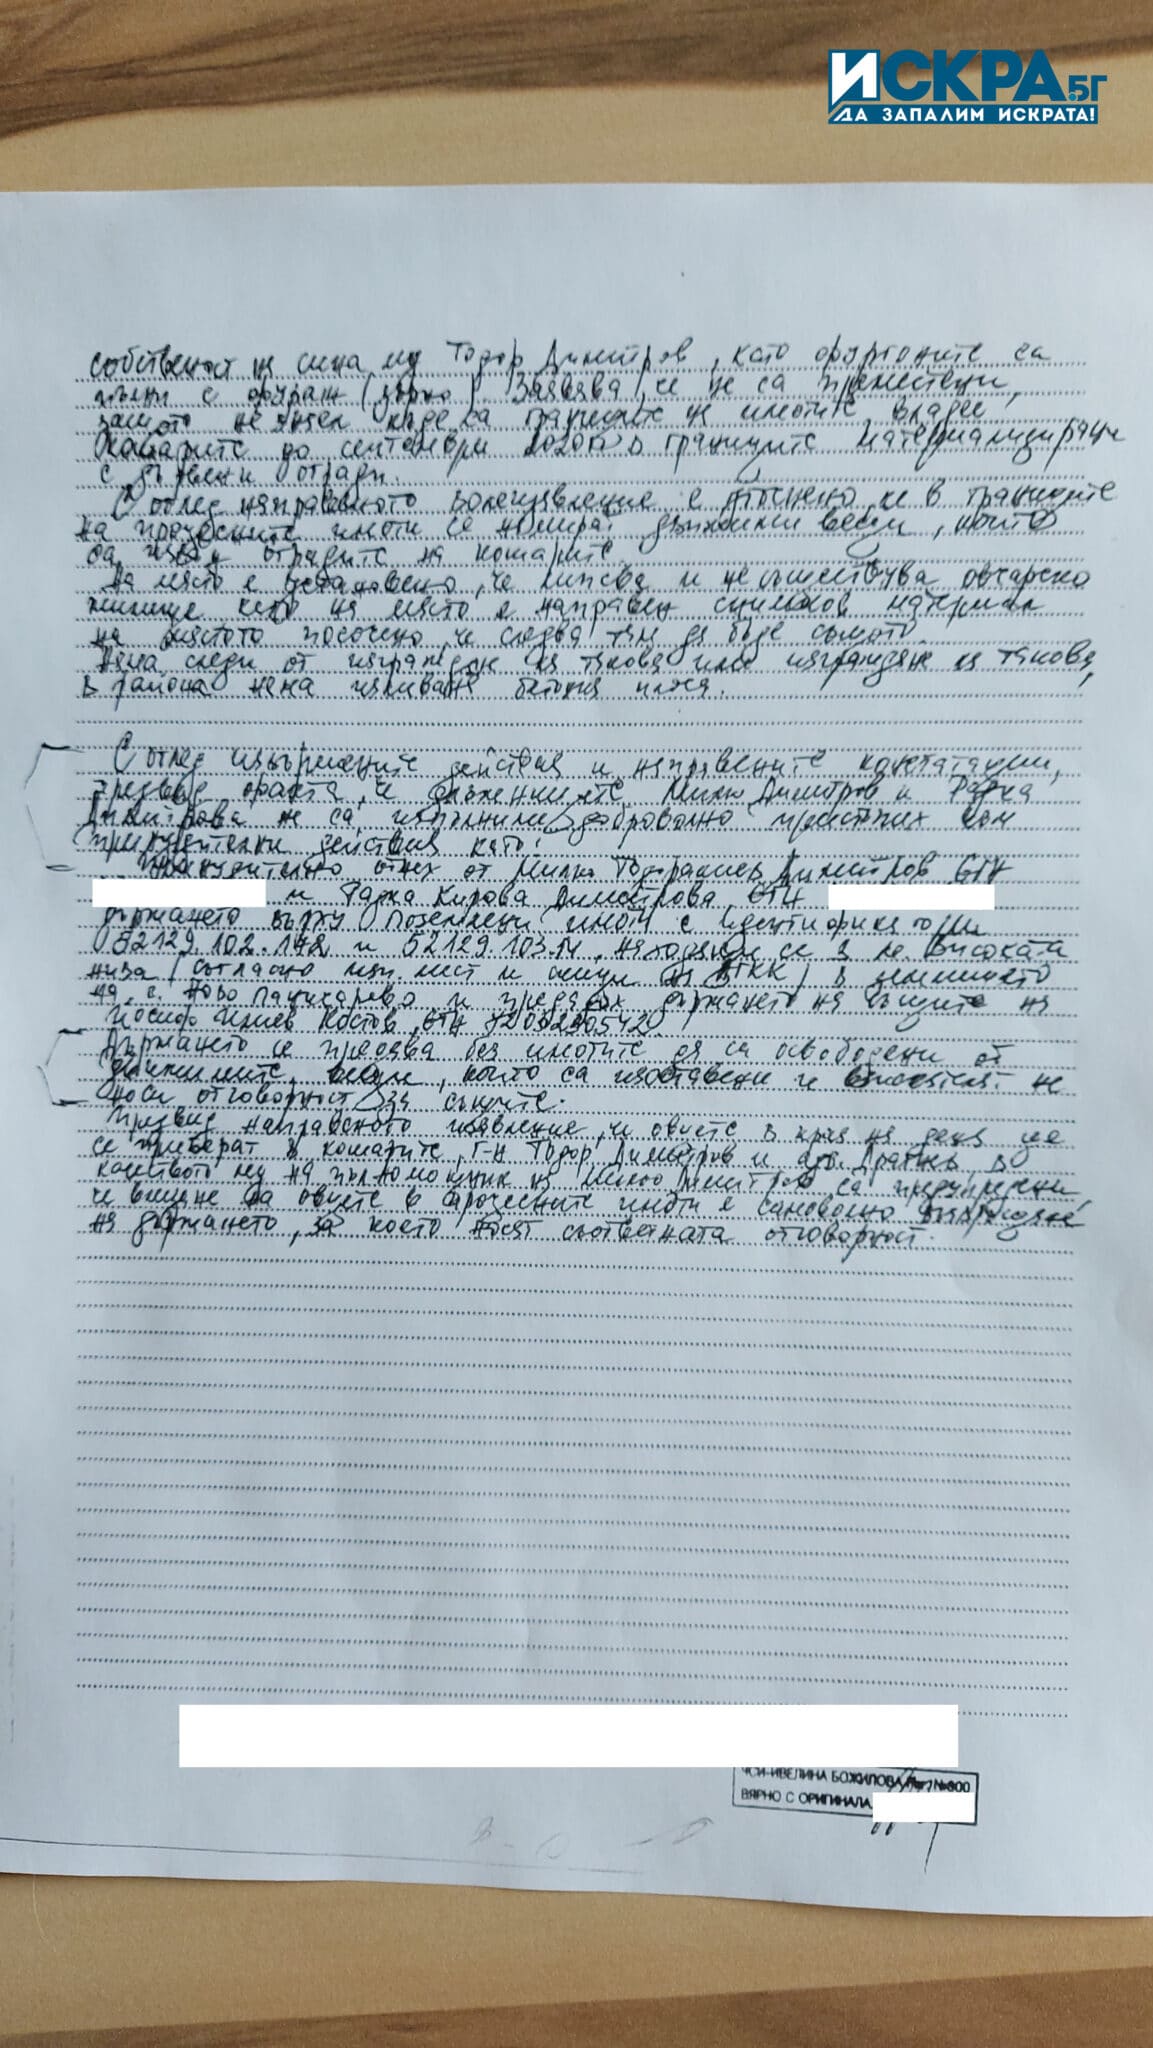 ИСКРА.БГ
ДА ЗАПАЛИМ ИСКРАТА!
собственост на сина му Тодор Димитров, като фургоните са
пълни с фураж (зърно). Заявява, че не са преместени,
защото не знаел къде са границите на имотите. Владее
кошарите до септември 2020 в границите материализирани
с дървени огради.
С оглед направеното волеизявление е пояснено, че в границите
на процесните имоти се намират движими вещи, които
са извън оградите на кошарите.
На място е установено, че липсва и не съществува овчарско
жилище като на място е направен снимков материал
на мястото посочено, че следва там да бъде същото.
Няма следи от изграждане на такова или изграждане на такова,
в района няма изливане бетонна плоча.
С оглед извършените действия и направените констатации,
предвид факта, че длъжниците Милко Димитров и Радка
Димитрова не са изпълнили доброволно пристъпих към
принудителни действия като:
Принудително отнех от Милко Димитров ЕГН
и Радка Кирова Димитрова ЕГН
държането върху поземлени имоти с идентификатори
52129.102.148 и 52129.103.14, находящи се в м. Високата
нива (съгласно изп. лист и скици на АГКК) в землището
на с. Ново Паничарево и предадох държането на същите на
Йосиф Илиев Костов, ЕГН
Държането се предава без имотите да са освободени от
движимите вещи, които са изоставени и не
носи отговорност за същите.
Предвид направеното изявление, че овцете в края на деня ще
се приберат в кошарите, г-н Тодор Димитров и адв. Драгнев, в
качеството му на пълномощник на Милко Димитров са предупредени,
че влизане на овцете в процесните имоти е самоволно
на държането, за което носят съответната отговорност.
ЧСИ ИВЕЛИНА БОЖИЛОВА, рег. №800
ВЯРНО С ОРИГИНАЛА